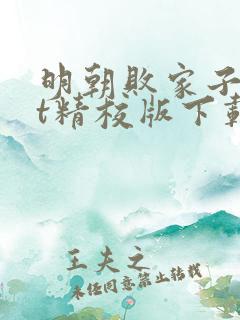 明朝败家子
t精校版下载
王夫之
未经同意禁止转载